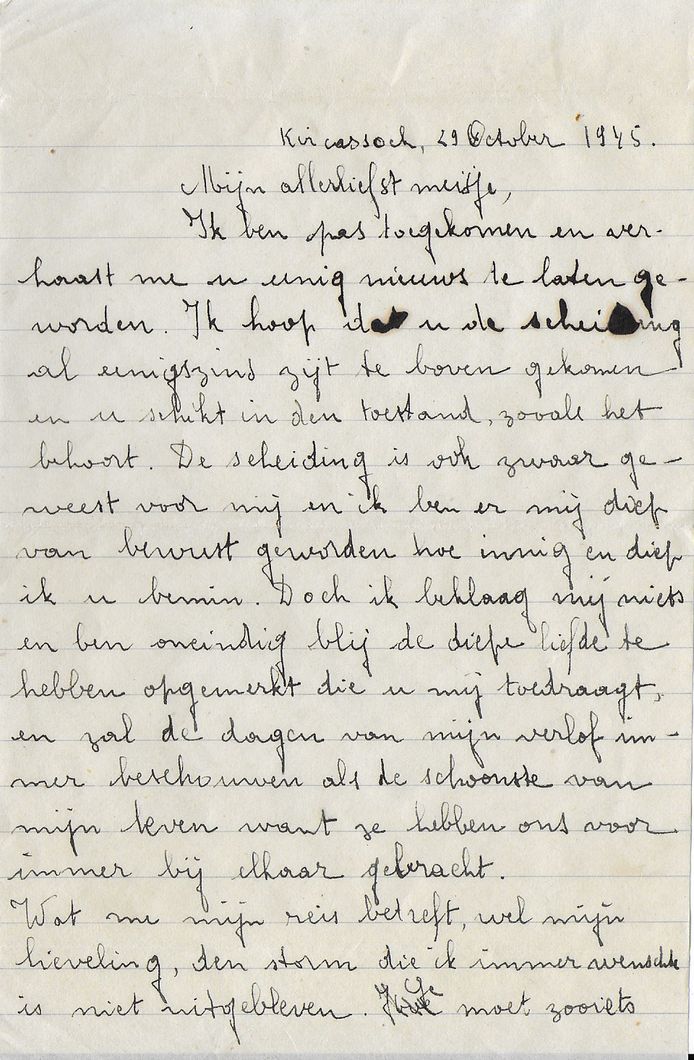 Kircassoch, 29 October 1945.
Mijn allerliefst meisje,
Ik ben pas toegekomen en ver-
haast me u eenig nieuws te laten ge-
worden. Ik hoop dat u de scheiding
al eenigszins zijt te boven gekomen
en u schikt in den toestand, zooals het
behoort. De scheiding is ook zwaar ge-
weest voor mij en ik ben er mij diep
van bewust geworden hoe innig en diep
ik u bemin. Doch ik beklaag mij niets
en ben oneindig blij de diepe liefde te
hebben opgemerkt die u mij toedraagt,
en zal de dagen van mijn verlof im-
mer beschouwen als de schoonste van
mijn leven want ze hebben ons voor
immer bij elkaar gebracht.
Wat me mijn reis betreft, wel mijn
lieveling, den storm die ik immer wenschte
is niet uitgebleven. Ge moet zooiets